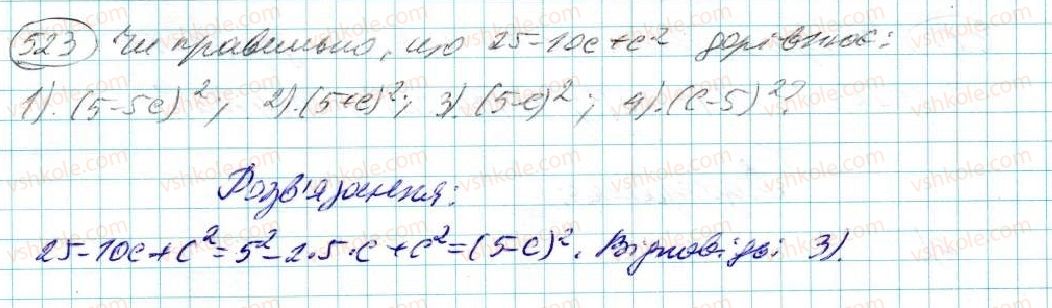 523 Чи правильно, що 25-10c+c² дорівнює:
1). (5-5c)²; 2). (5+c)²; 3). (5-c)²; 4). (c-5)²?
Розв'язання:
25-10c+c²=5²-2·5·c+c²=(5-c)². Відповідь: 3).